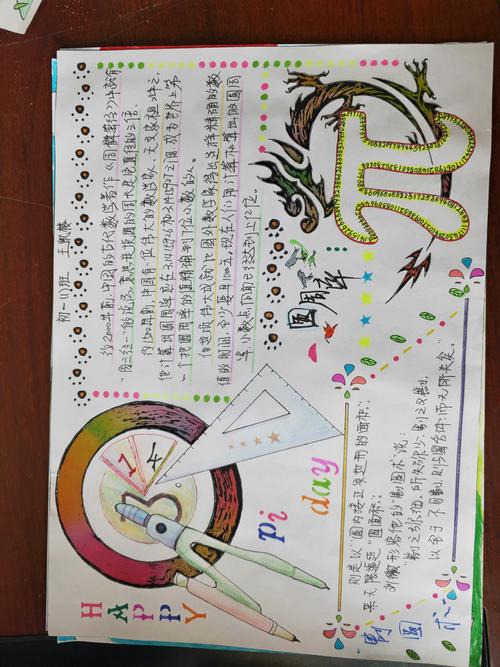 初一(1)班 王
约2000年前,中国的古代数学著作《周髀算经》中就有
"周三径一"的说法,意思是说圆的周长是它直径的3倍。
约1500年前,中国有一位伟大的数学家、天文家祖冲之。
他计算出圆周率应在3.1415926和3.1415927之间,成为世界上第
一个把圆周率的值精确到7位小数的人。
他这项伟大成就比国外数学家得出这样精确的数
值的时间,至少要早1000年。现在人们用计算机算出的圆周
率,小数点后面已经达到上亿位。
圆周率
π
HAPPY
Pi day
314
则是以"圆内接正多边形的面积",
来无限逼近"圆面积"。
刘徽形容他的"割圆术"说:
割之弥细,所失弥少,割之又割,
以至于不可割,则与圆合体,而无所失矣。
割圆术